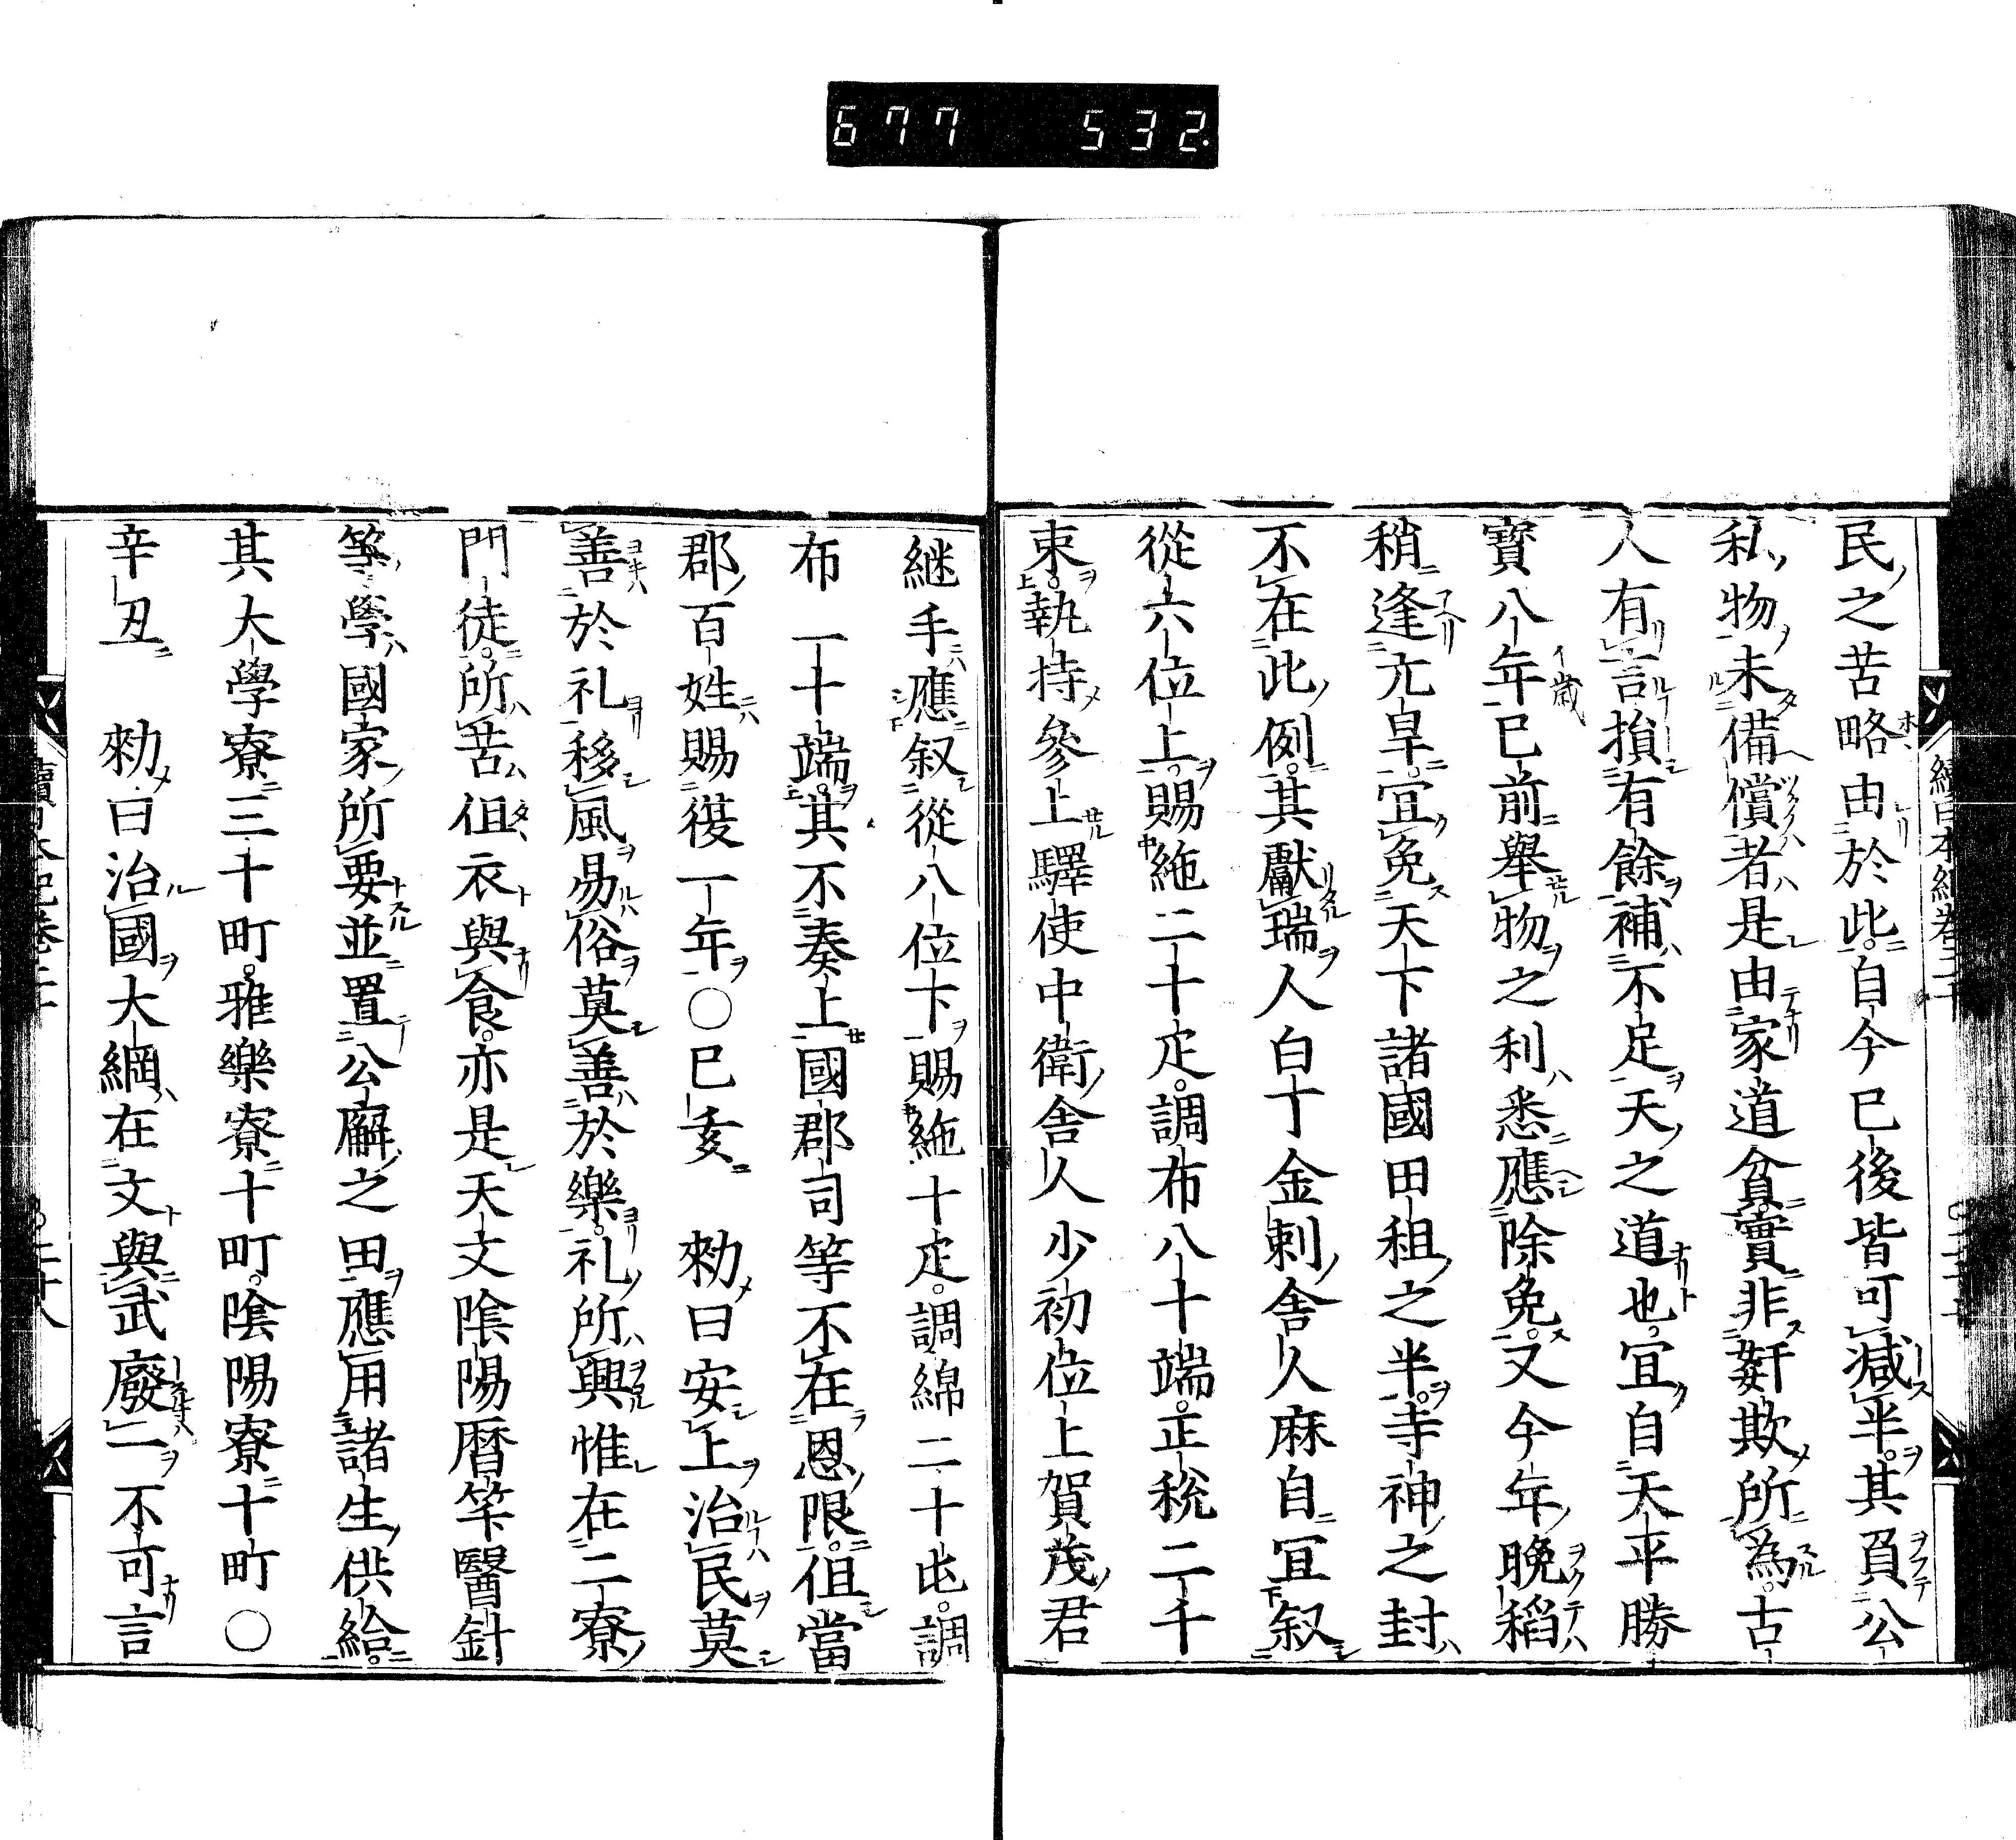 677 532
民之苦略由於此自今已後皆可減半其負公
私物未備償者是由家道貧實非姧欺所為古
人有言損有餘補不足天之道也宜自天平勝
寶八年已前舉物之利悉應除免又今年晩稻
稍逢亢旱宜免天下諸國田租之半寺神之封
不在此例其獻瑞人白丁金刺舎人麻自宜叙
從六位上賜絁二十疋調布八十端正税二千
束執持參上驛使中衛舎人少初位上賀茂君
継手應叙從八位下賜絁十疋調綿二十屯調
布一十端其不奏上國郡司等不在恩限但當
郡百姓賜復一年〇已亥 勑曰安上治民莫
善於礼移風易俗莫善於樂礼所興惟在二寮
門徒所苦但衣與食亦是天文陰陽暦筭醫針
等學國家所要並置公廨之田應用諸生供給
其大學寮三十町雅樂寮十町陰陽寮十町〇
辛丑 勑曰治國大綱在文與武廢一不可言